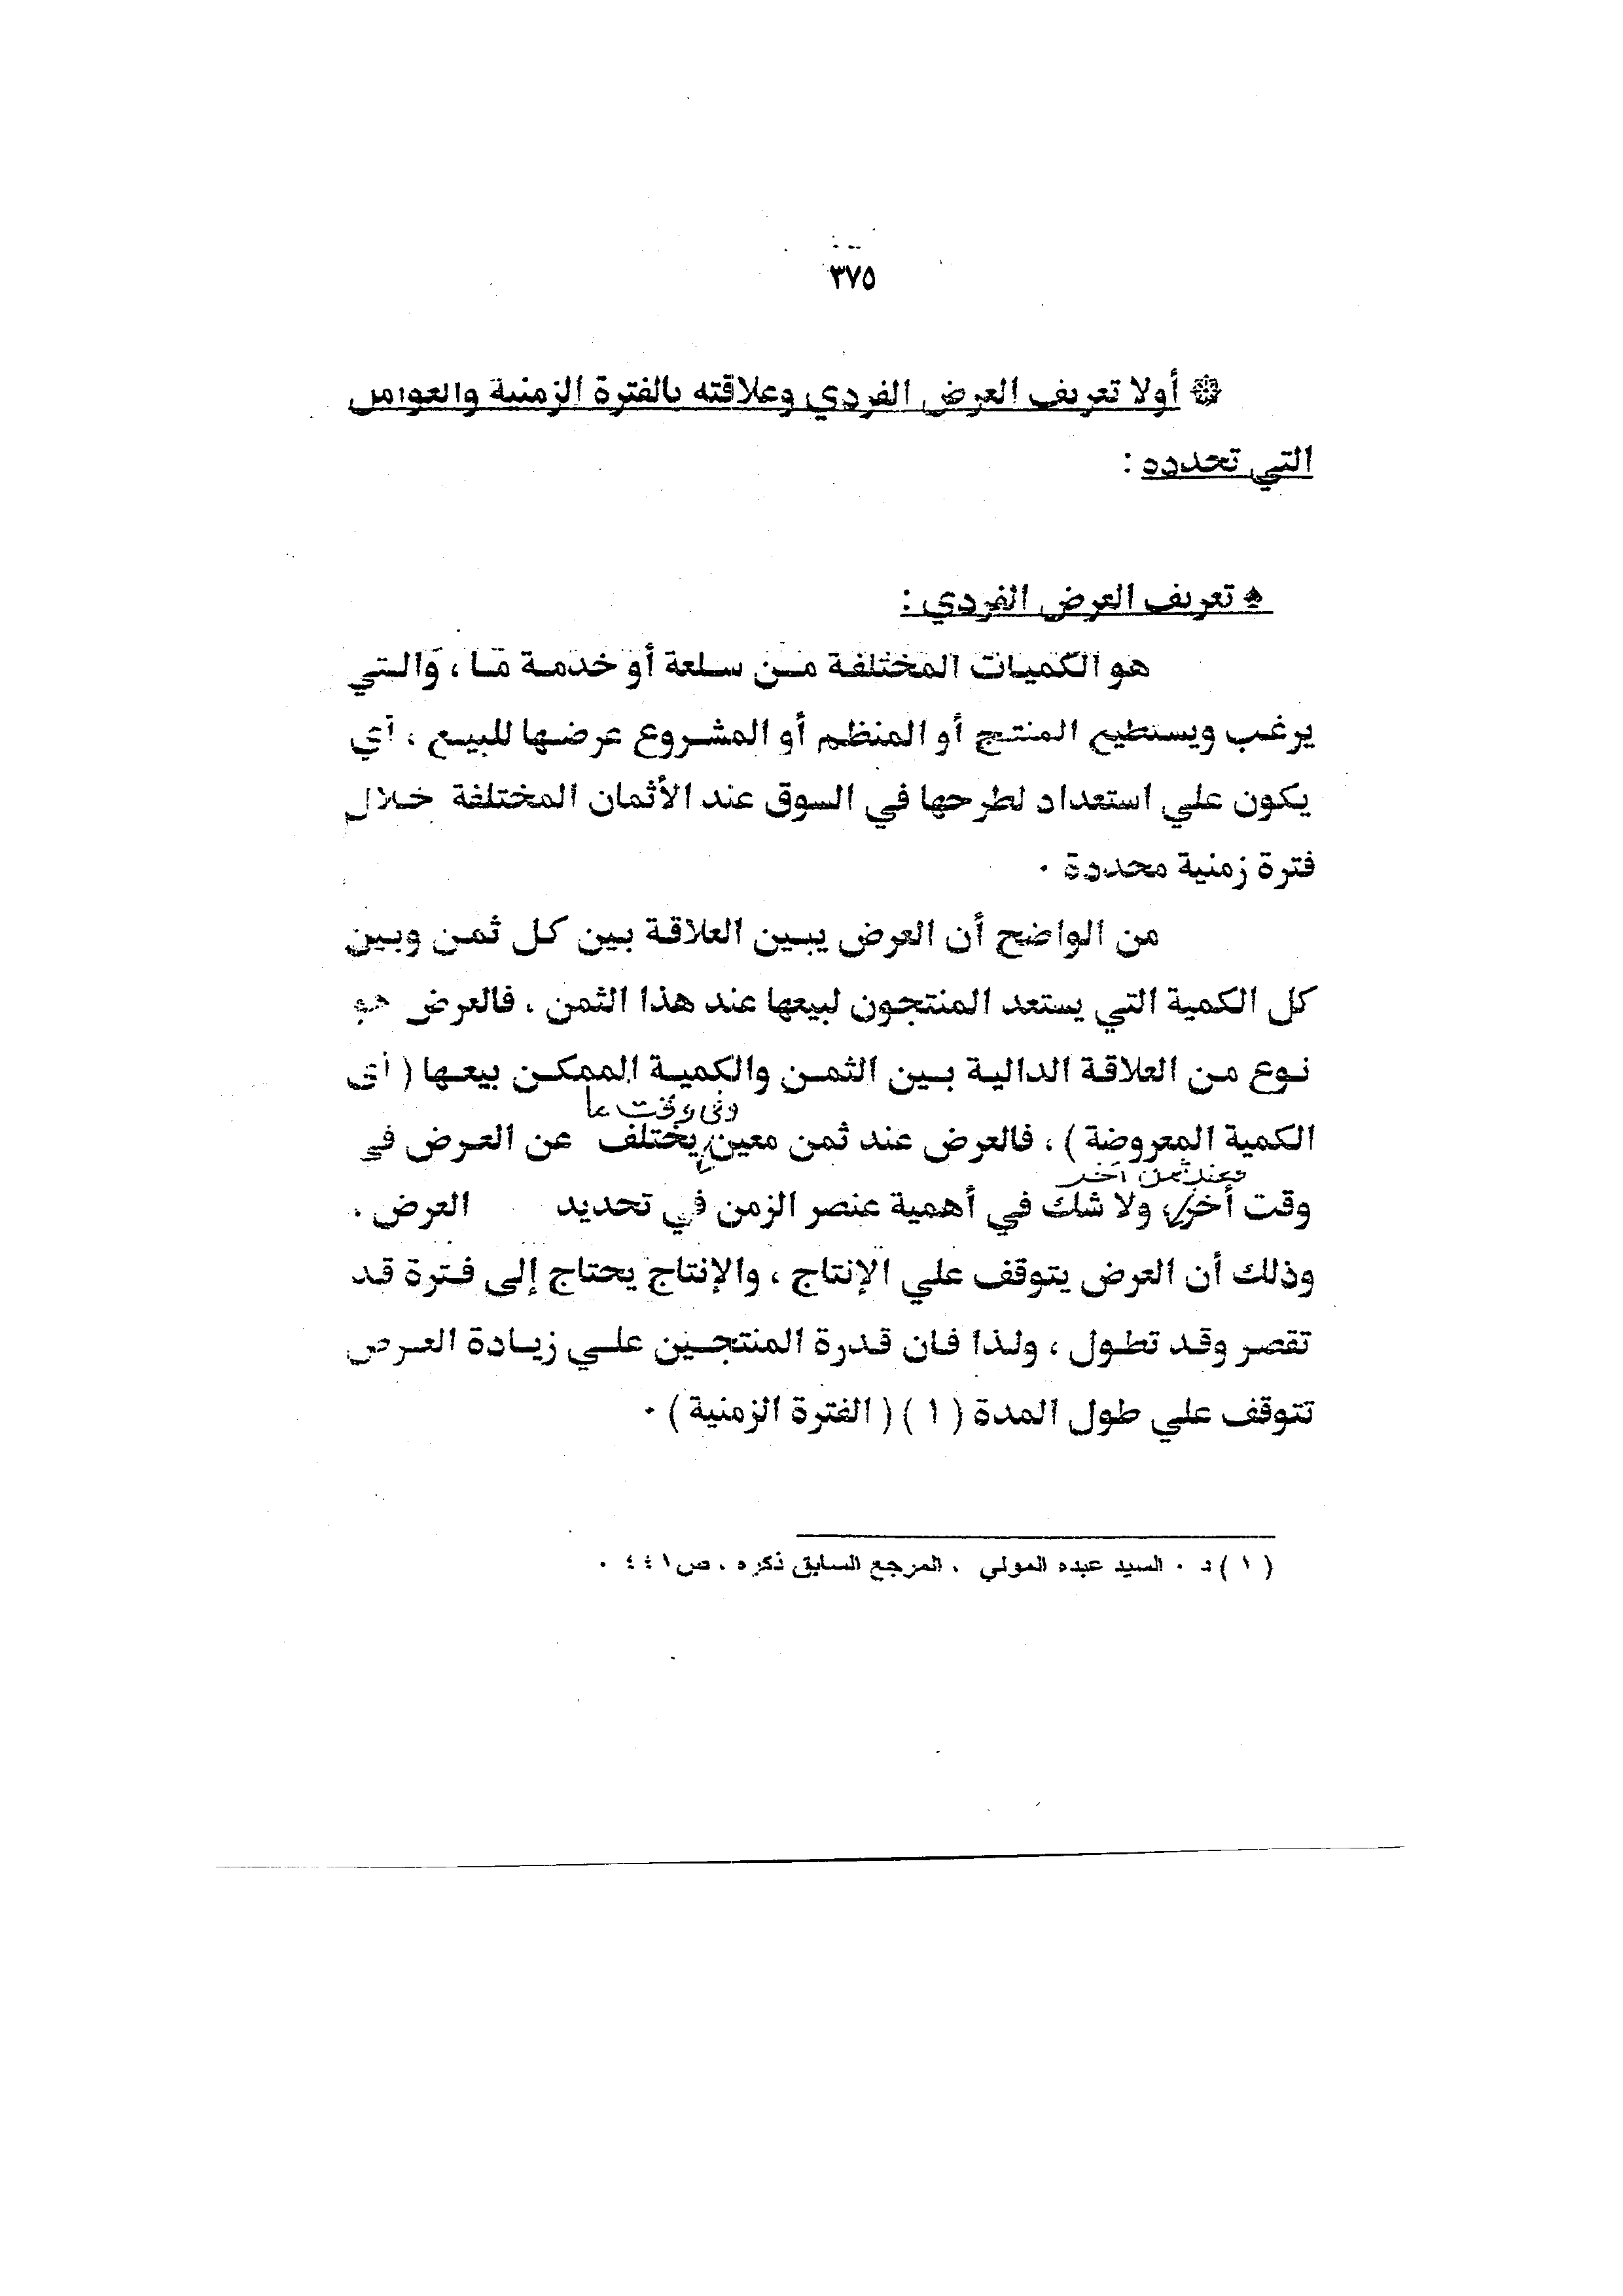 ٣٧٥
أولا تعريف العرض الفردي وعلاقته بالفترة الزمنية والعوامل
التي تحدده :
تعريف العرض الفردي :
هو الكميات المختلفة من سلعة أو خدمة ما ، والتي
يرغب ويستطيع المنتج أو المنظم أو المشروع عرضها للبيع ، أي
يكون علي استعداد لطرحها في السوق عند الأثمان المختلفة خلال
فترة زمنية محددة .
من الواضح أن العرض يبين العلاقة بين كل ثمن وبين
كل الكمية التي يستعد المنتجون لبيعها عند هذا الثمن . فالعرض هو
نوع من العلاقة الدالية بين الثمن والكمية الممكن بيعها ( أى
وفى وقت ما
الكمية المعروضة ) ، فالعرض عند ثمن معين يختلف عن العرض في
وعند ثمن آخر
وقت أخر ، ولا شك في أهمية عنصر الزمن في تحديد العرض .
وذلك أن العرض يتوقف علي الإنتاج ، والإنتاج يحتاج إلى فترة قد
تقصر وقد تطول ، ولذا فان قدرة المنتجين علي زيادة العرض
تتوقف علي طول المدة ( ١ ) ( الفترة الزمنية ) .
( ١ ) د . السيد عبده المولي ، المرجع السابق ذكره ، ص٤٤١ .